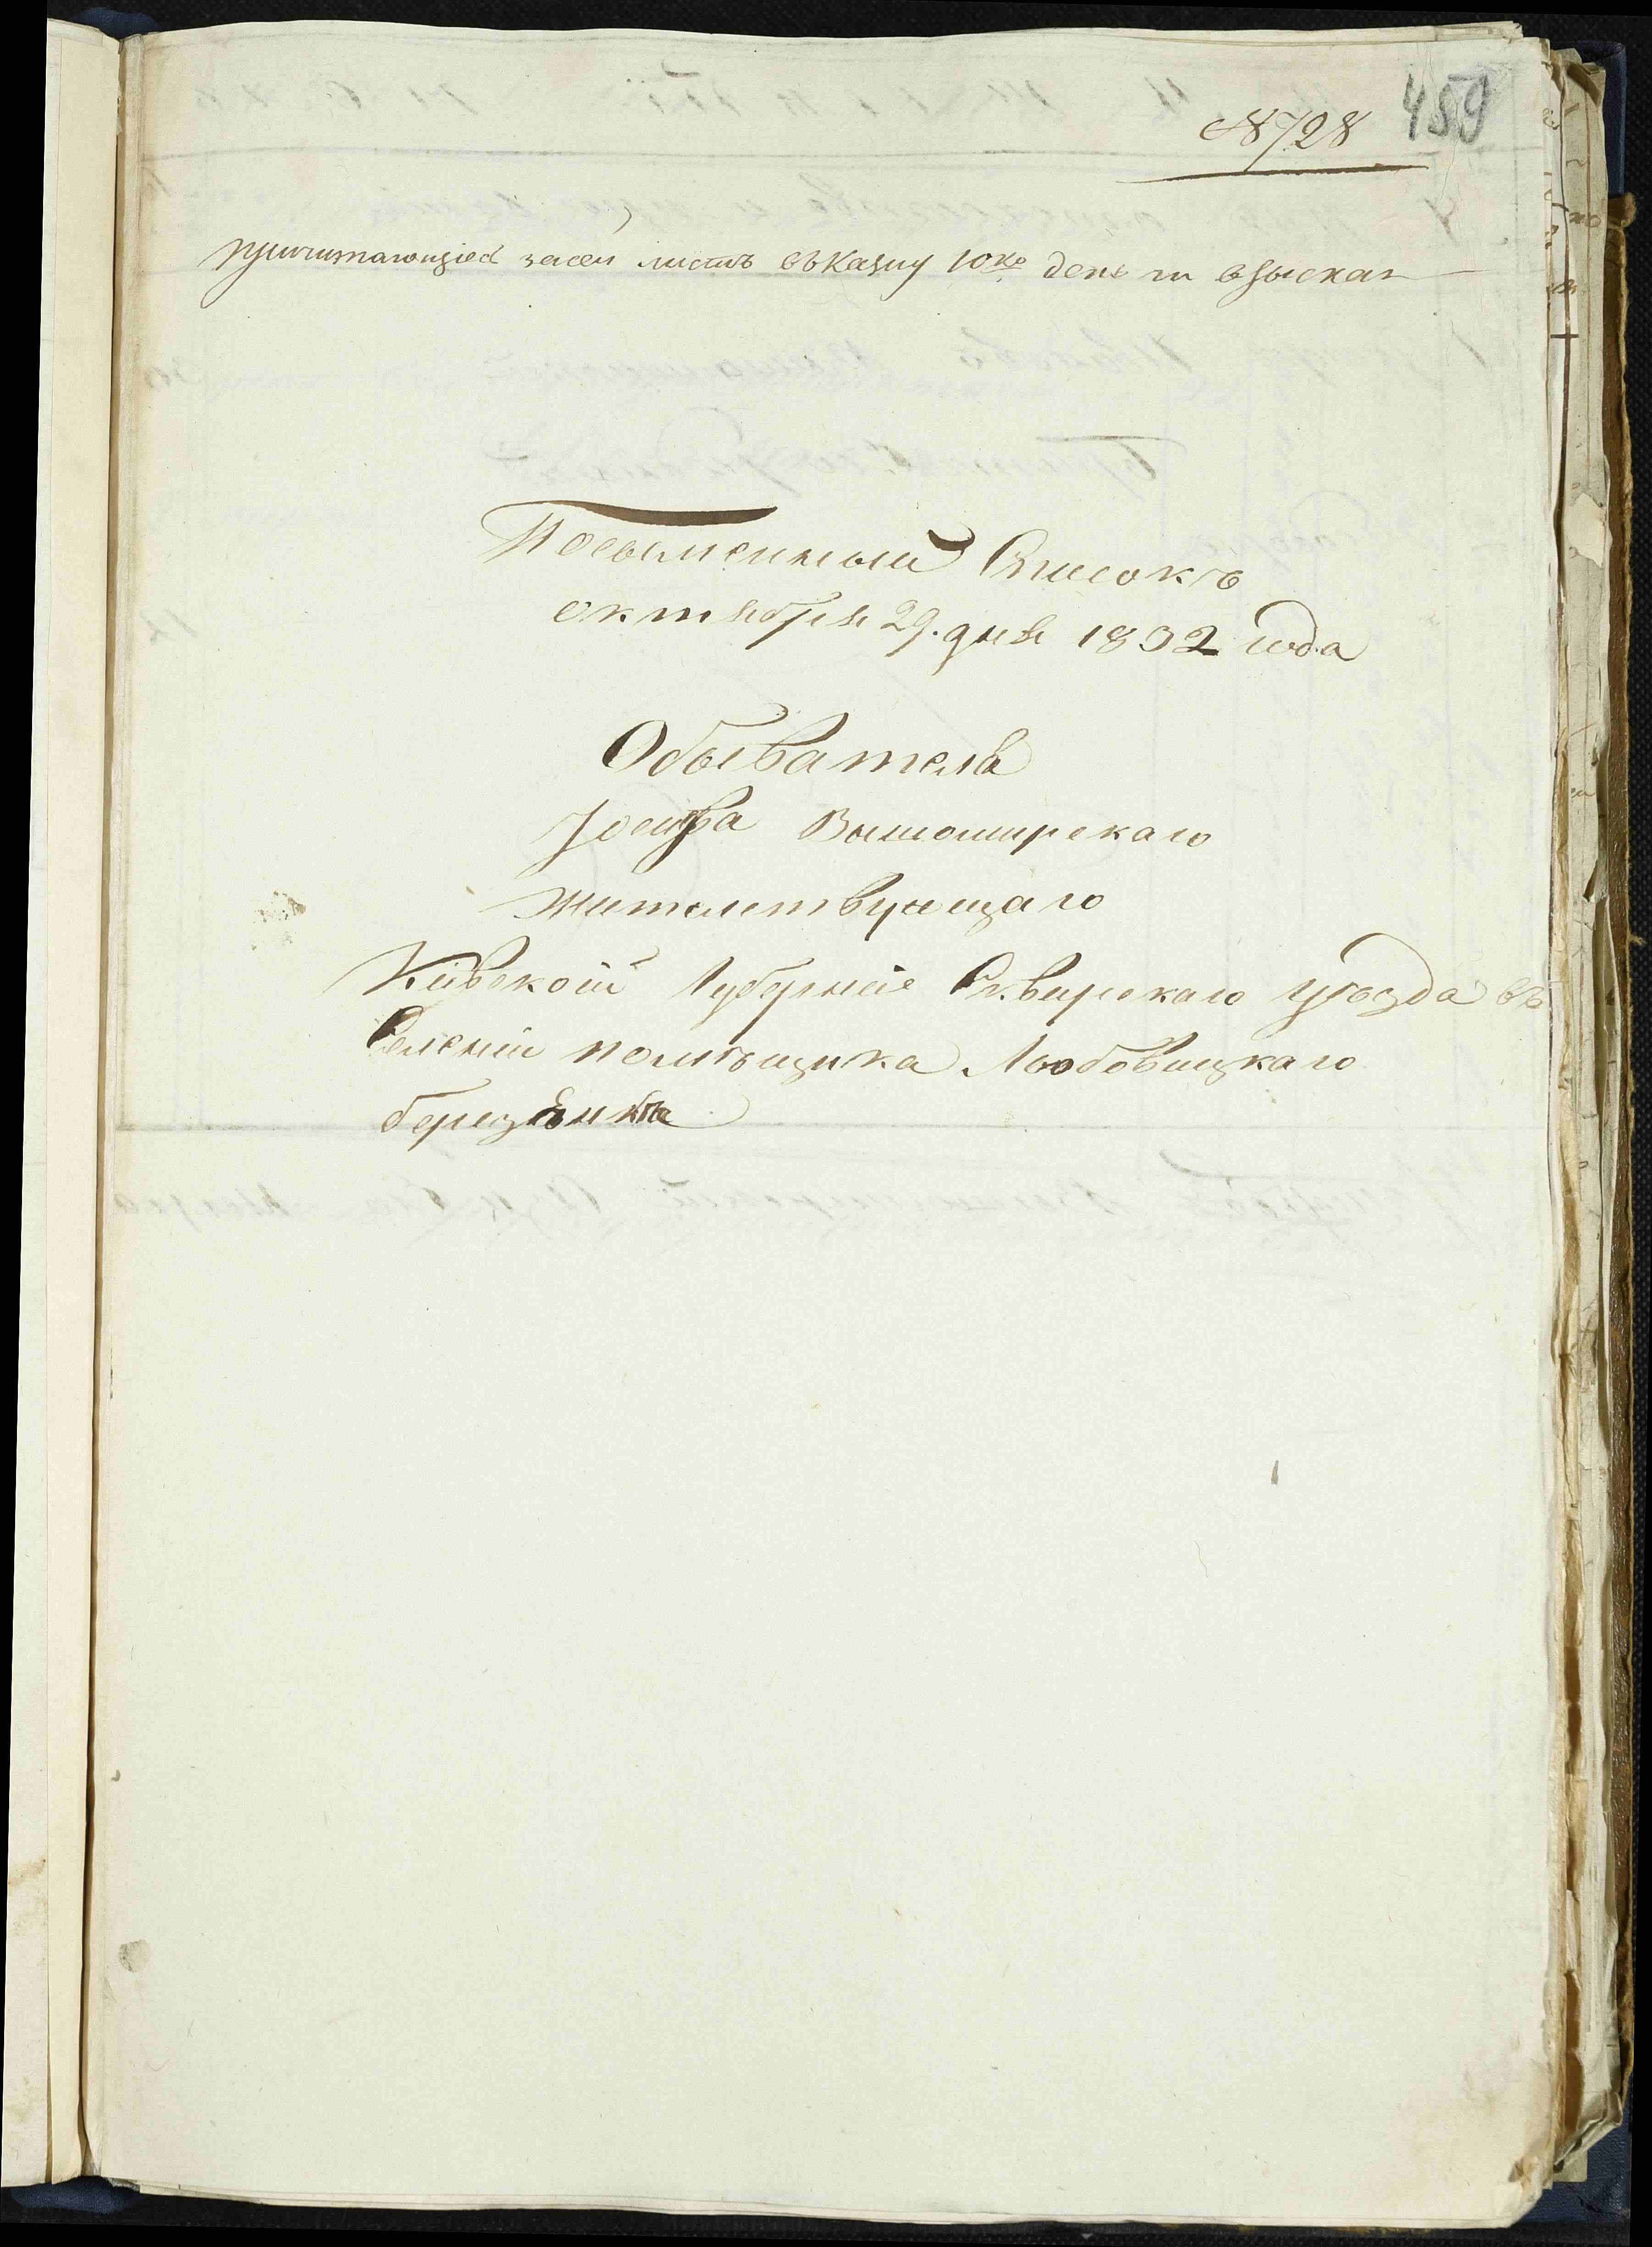 459
№ 728
причитающіеся за сей листъ въ казну 10 ко денги взыскан
Посемейный Списокъ
октября 29. дня 1832 года
Обывателя
Іосифа Вышомирскаго
жителствующаго
Кіевской Губерніи Сквирскаго уѣзда въ
Селеніи помѣщика Любовицкаго